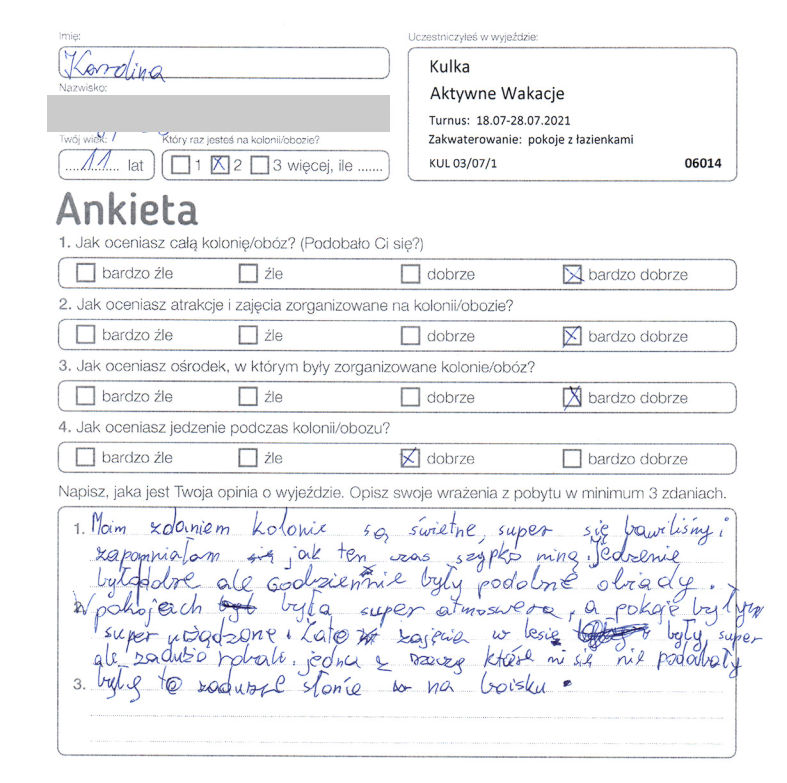 Imię:
Karolina
Nazwisko:
Twój wiek:
Który raz jesteś na kolonii/obozie?
11 lat
1 2 3 więcej, ile .......
Uczestniczyłeś w wyjeździe:
Kulka
Aktywne Wakacje
Turnus: 18.07-28.07.2021
Zakwaterowanie: pokoje z łazienkami
KUL 03/07/1 06014
Ankieta
1. Jak oceniasz całą kolonię/obóz? (Podobało Ci się?)
bardzo źle źle dobrze bardzo dobrze
2. Jak oceniasz atrakcje i zajęcia zorganizowane na kolonii/obozie?
bardzo źle źle dobrze bardzo dobrze
3. Jak oceniasz ośrodek, w którym były zorganizowane kolonie/obóz?
bardzo źle źle dobrze bardzo dobrze
4. Jak oceniasz jedzenie podczas kolonii/obozu?
bardzo źle źle dobrze bardzo dobrze
Napisz, jaka jest Twoja opinia o wyjeździe. Opisz swoje wrażenia z pobytu w minimum 3 zdaniach.
1. Moim zdaniem kolonie są świetne, super się bawiliśmy i
zapomniałam się jak ten czas szypko miną. Jedzenie
było dobre ale codziennie były podobne obiady.
W pokojach była super atmoswera, a pokoje były
super użądzone. zajęcia w lesie były super
ale zadużo robali. jedną z rzeczy które mi się nie podobały
3. były to zaduże słońce na boisku.